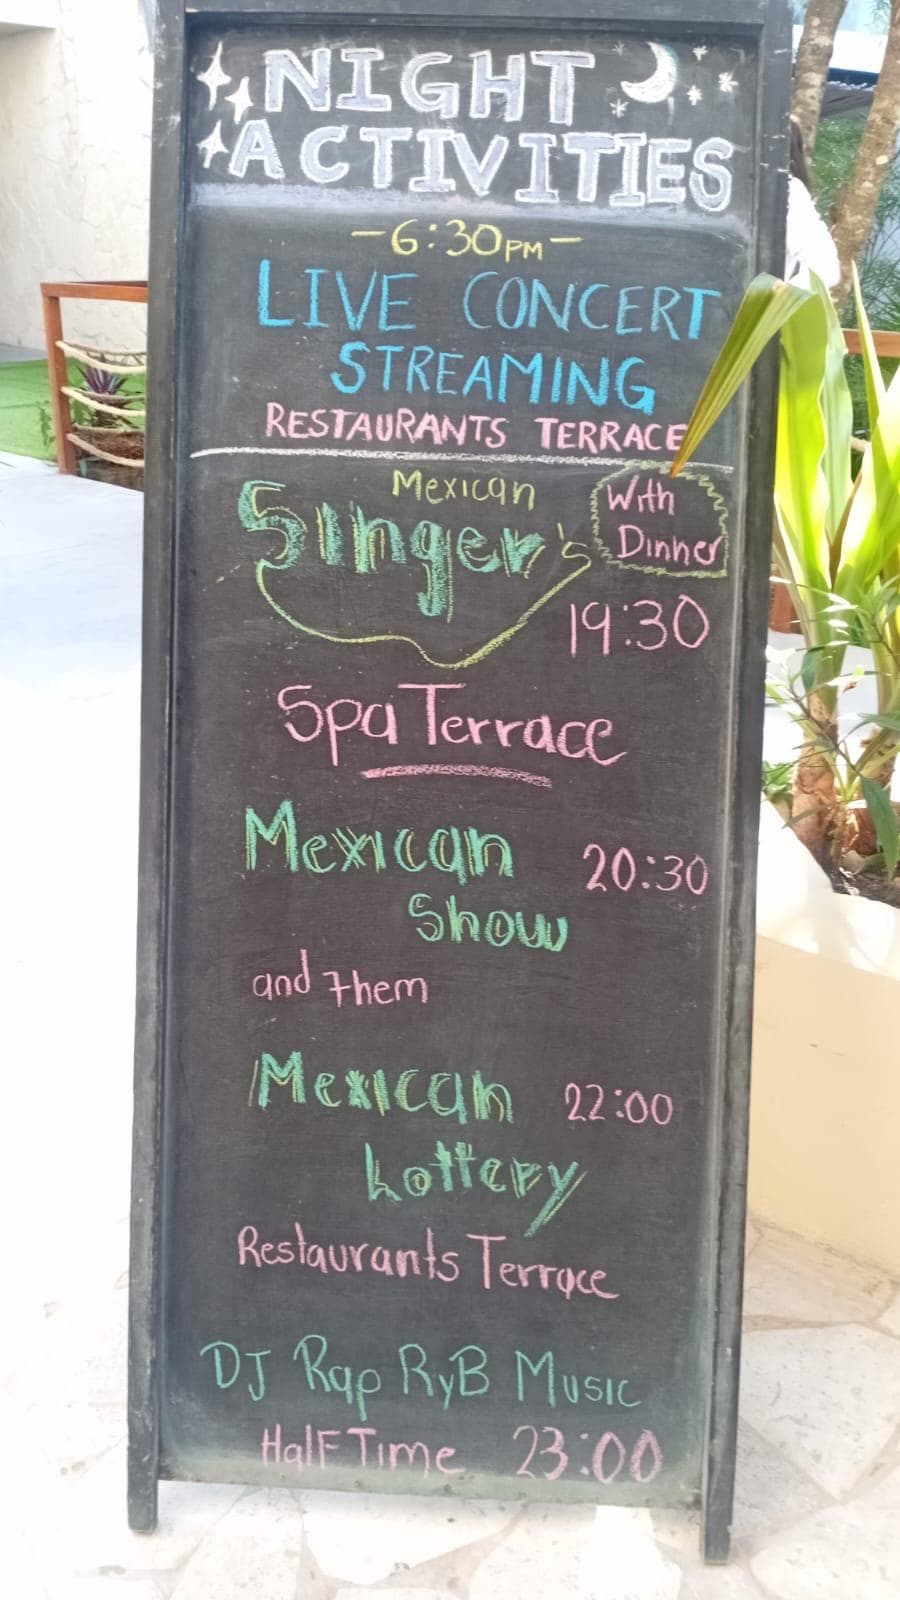 NIGHT
ACTIVITIES
-6:30PM-
LIVE CONCERT
STREAMING
RESTAURANTS TERRACE
Mexican
Singer's
With
Dinner
19:30
Spa Terrace
Mexican 20:30
Show
and them
Mexican 22:00
Lottery
Restaurants Terrace
DJ Rap RyB Music
Half Time 23:00